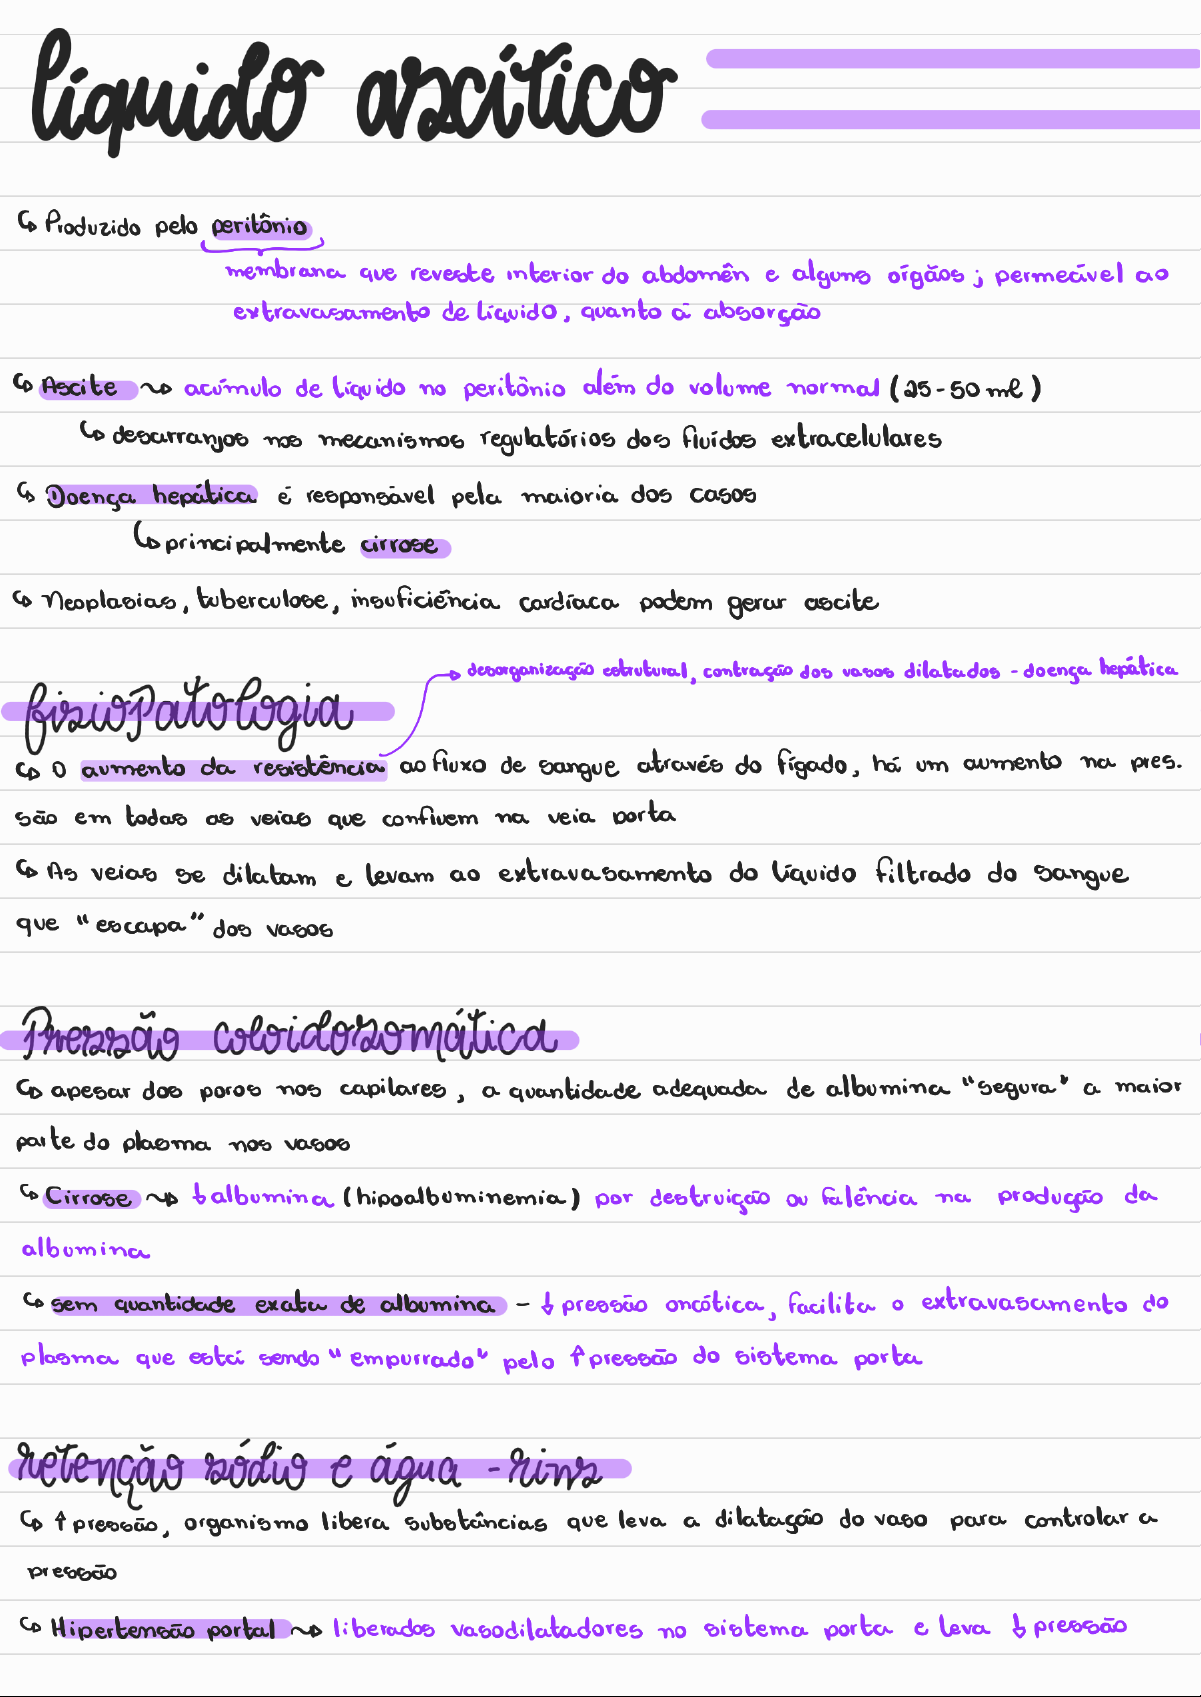 líquido ascítico
↳ Produzido pelo peritônio
membrana que reveste interior do abdomên e alguns orgãos; permeável ao
extravasamento de líquido, quanto à absorção
↳ Ascite ⤳ acúmulo de líquido no peritônio além do volume normal (25-50 ml)
↳ desarranjos nos mecanismos regulatórios dos fluídos extracelulares
↳ Doença hepática é responsável pela maioria dos casos
↳ principalmente cirrose
↳ Neoplasias, tuberculose, insuficiência cardíaca podem gerar ascite
→ desorganização estrutural, contração dos vasos dilatados - doença hepática
fisiopatologia
↳ O aumento da resistência ao fluxo de sangue através do fígado, há um aumento na pres.
são em todas as veias que confivem na veia porta
↳ As veias se dilatam e levam ao extravasamento do líquido filtrado do sangue
que "escapa" dos vasos
Pressão coloidosomática
↳ apesar dos poros nos capilares, a quantidade adequada de albumina "segura" a maior
parte do plasma nos vasos
↳ Cirrose ⤳ ↓albumina (hipoalbuminemia) por destruição ou falência na produção da
albumina
↳ sem quantidade exata de albumina - ↓ pressão oncótica, facilita o extravasamento do
plasma que está sendo "empurrado" pelo ↑pressão do sistema porta
retenção sódio e água - rins
↳ ↑pressão, organismo libera substâncias que leva a dilatação do vaso para controlar a
pressão
↳ Hipertensão portal ⤳ liberados vasodilatadores no sistema porta e leva ↓ pressão